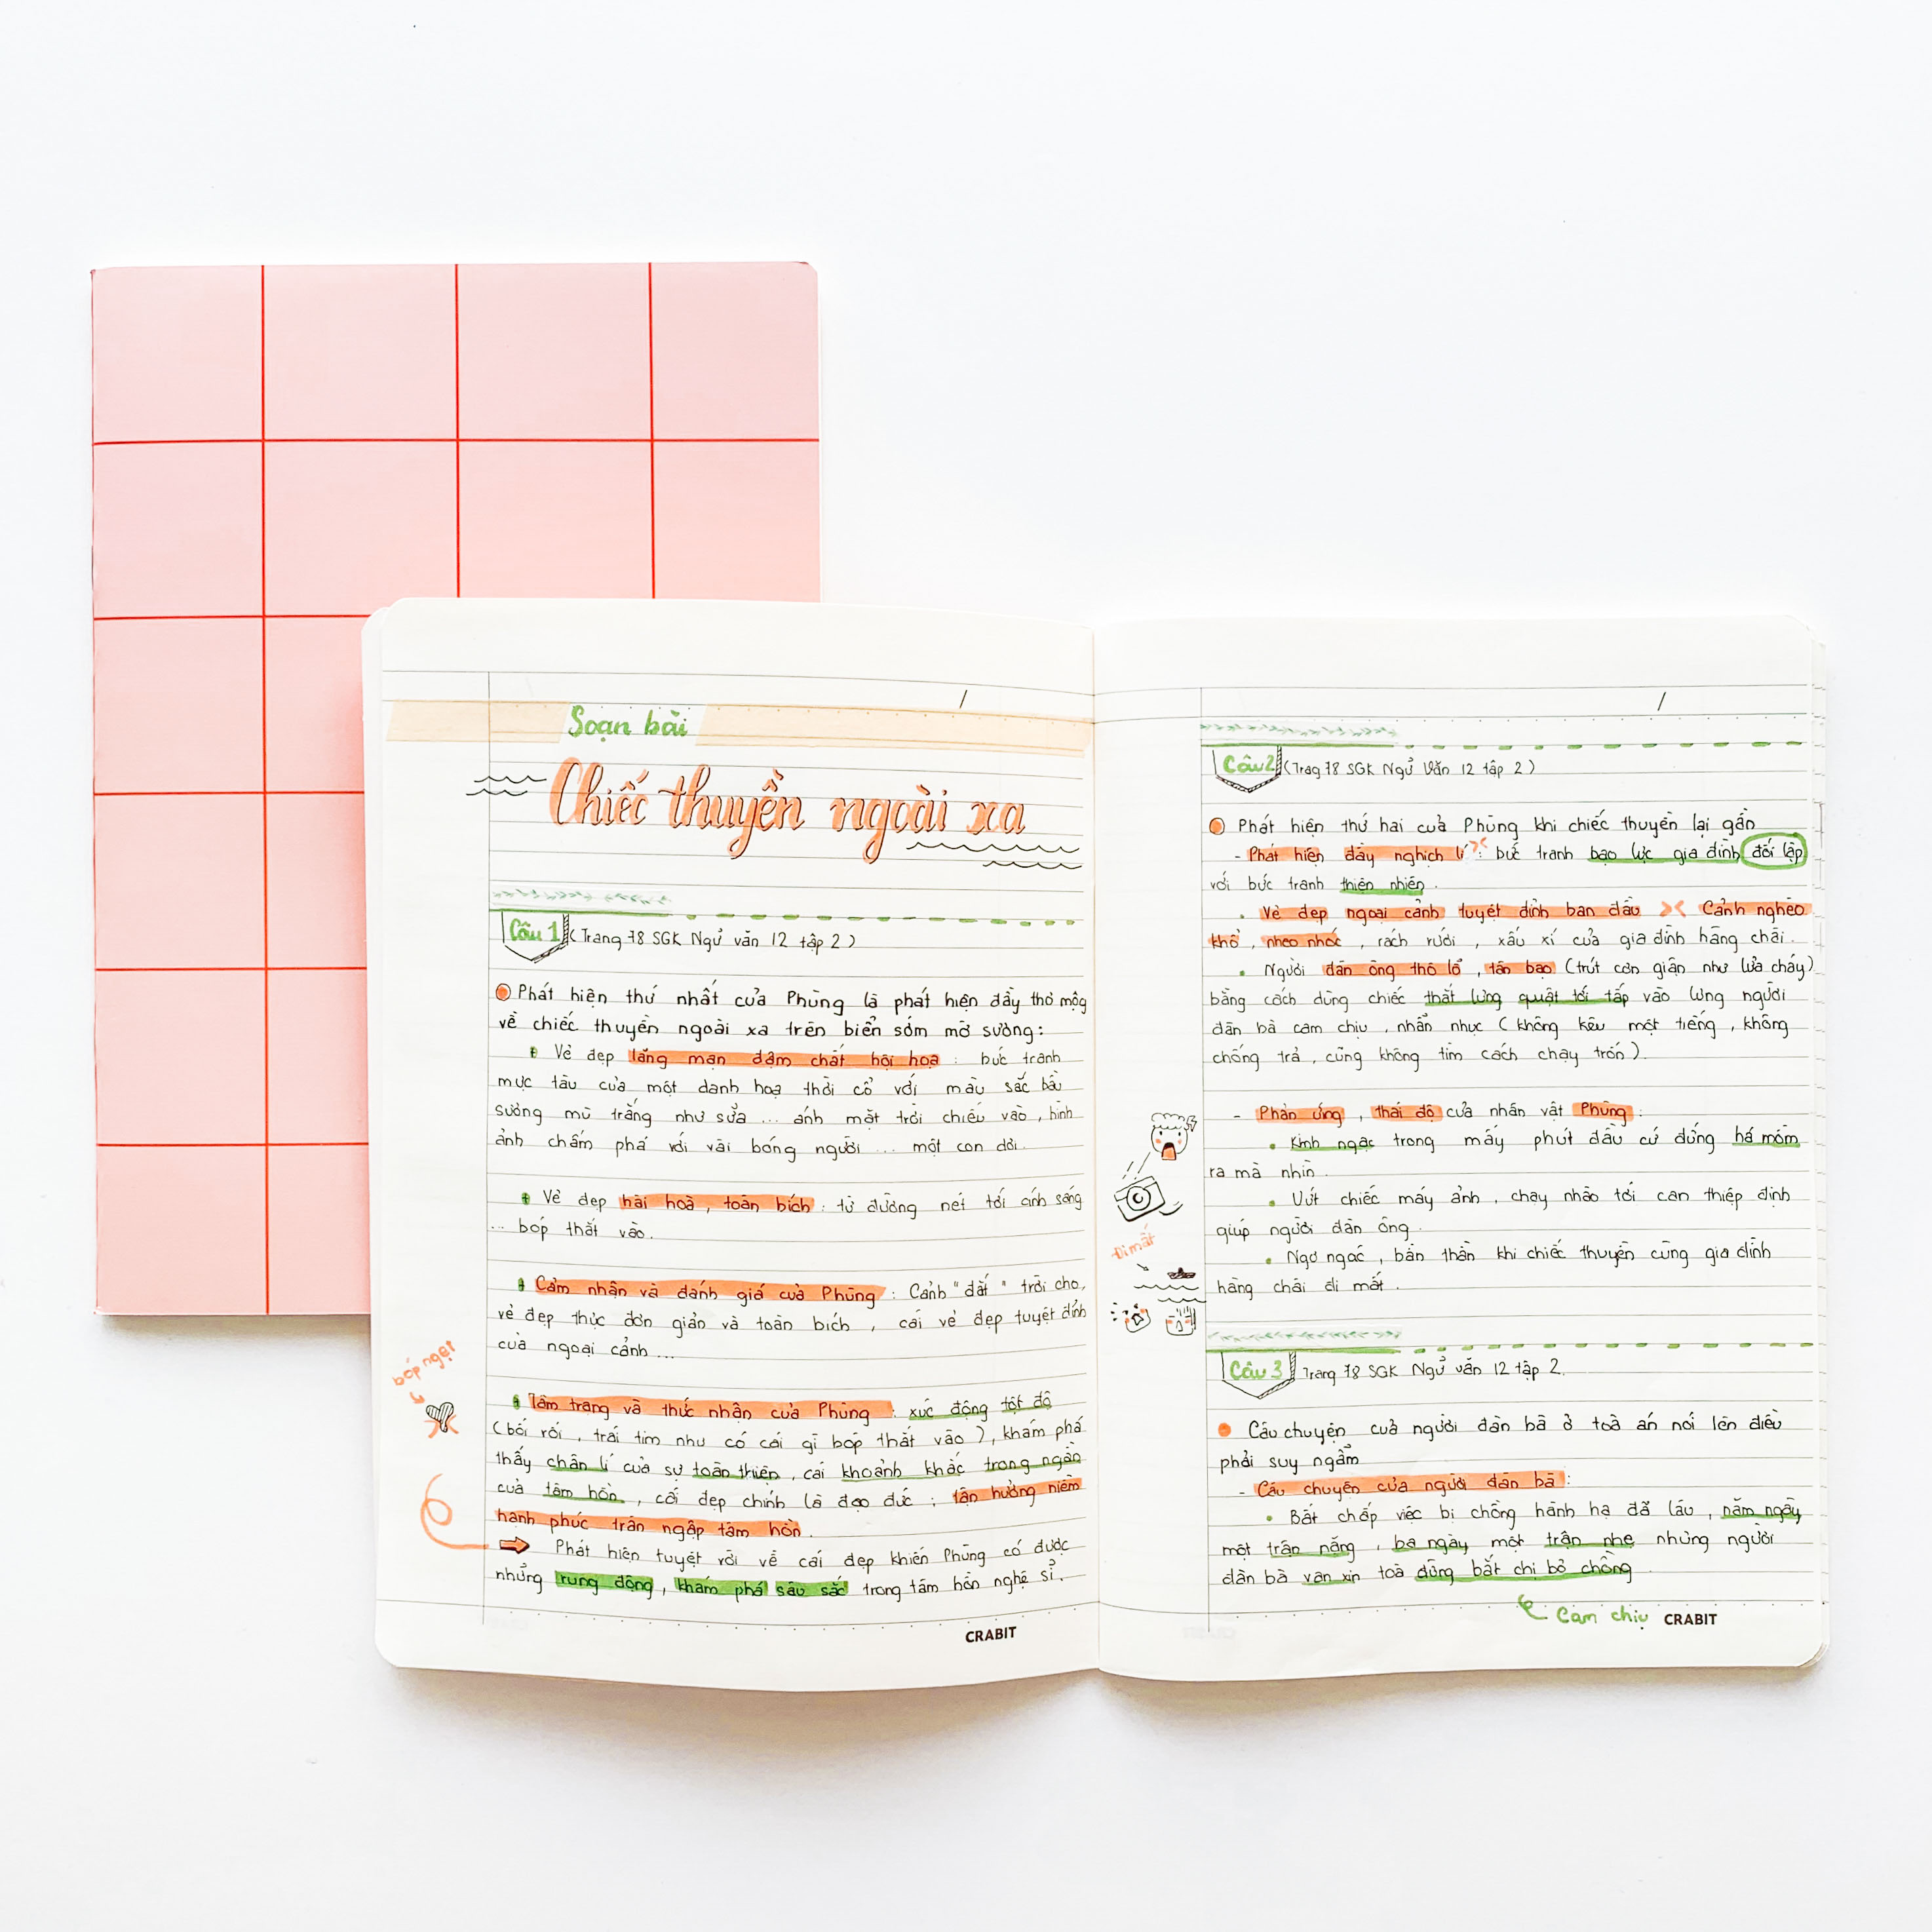 Soạn bài
Chiếc thuyền ngoài xa
Câu 1 (Trang 78 SGK Ngữ văn 12 tập 2)
Phát hiện thứ nhất của Phùng là phát hiện đầy thơ mộng
về chiếc thuyền ngoài xa trên biển sớm mờ sương:
Vẻ đẹp lãng mạn đậm chất hội hoạ : bức tranh
mực tàu của một danh hoạ thời cổ với màu sắc bầu
sương mù trắng như sữa ... ánh mặt trời chiếu vào, hình
ảnh chấm phá với vài bóng người ... một con dơi.
Vẻ đẹp hài hoà, toàn bích : từ đường nét tới ánh sáng
... bóp thắt vào.
Cảm nhận và đánh giá của Phùng : Cảnh "đắt" trời cho,
vẻ đẹp thực đơn giản và toàn bích , cái vẻ đẹp tuyệt đỉnh
của ngoại cảnh ...
bóp nghẹt
Tâm trạng và thức nhận của Phùng : xúc động tột độ
(bối rối , trái tim như có cái gì bóp thắt vào), khám phá
thấy chân lí của sự toàn thiện , cái khoảnh khắc trong ngần
của tâm hồn , cái đẹp chính là đạo đức ; tận hưởng niềm
hạnh phúc tràn ngập tâm hồn .
Phát hiện tuyệt vời về cái đẹp khiến Phùng có được
những rung động, khám phá sâu sắc trong tâm hồn nghệ sĩ.
CRABIT
Câu 2 (Trag 78 SGK Ngữ Văn 12 tập 2)
Phát hiện thứ hai của Phùng khi chiếc thuyền lại gần
- Phát hiện đầy nghịch lí : bức tranh bạo lực gia đình đối lập
với bức tranh thiên nhiên .
Vẻ đẹp ngoại cảnh tuyệt đỉnh ban đầu >< Cảnh nghèo
khổ , nheo nhóc , rách rưới , xấu xí của gia đình hàng chài .
Người đàn ông thô lỗ , tàn bạo (trút cơn giận như lửa cháy)
bằng cách dùng chiếc thắt lưng quật tới tấp vào lưng người
đàn bà cam chịu , nhẫn nhục ( không kêu một tiếng , không
chống trả , cũng không tìm cách chạy trốn ).
- Phản ứng , thái độ của nhân vật Phùng :
Kinh ngạc trong mấy phút đầu cứ đứng há mồm
ra mà nhìn .
Vứt chiếc máy ảnh , chạy nhào tới can thiệp định
giúp người đàn ông .
Đi mất
Ngơ ngác , bần thần khi chiếc thuyền cùng gia đình
hàng chài đi mất .
Câu 3 Trang 78 SGK Ngữ văn 12 tập 2.
Câu chuyện của người đàn bà ở toà án nói lên điều
phải suy ngẫm
- Câu chuyện của người đàn bà :
Bất chấp việc bị chồng hành hạ đã lâu , năm ngày
một trận nặng , ba ngày một trận nhẹ nhưng người
đàn bà vẫn xin toà đừng bắt chị bỏ chồng
Cam chịu
CRABIT